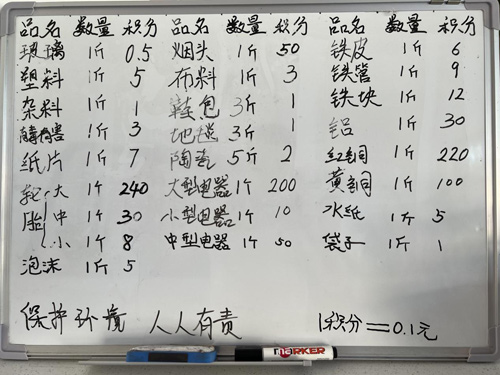 品名 数量 积分 品名 数量 积分 品名 数量 积分
玻璃 1斤 0.5 烟头 1斤 50 铁皮 1斤 6
塑料 1斤 5 布料 1斤 3 铁管 1斤 9
杂料 1斤 1 鞋包 3斤 1 铁块 1斤 12
有毒有害 1斤 3 地毯 3斤 1 铝 1斤 30
纸片 1斤 7 陶瓷 5斤 2 红铜 1斤 220
轮胎 大 1个 240 大型电器 1个 200 黄铜 1斤 100
中 1个 30 小型电器 1个 10 水纸 1斤 5
小 1个 8 中型电器 1个 50 袋子 1斤 1
泡沫 1斤 5
保护环境 人人有责 1积分=0.1元
MARKER